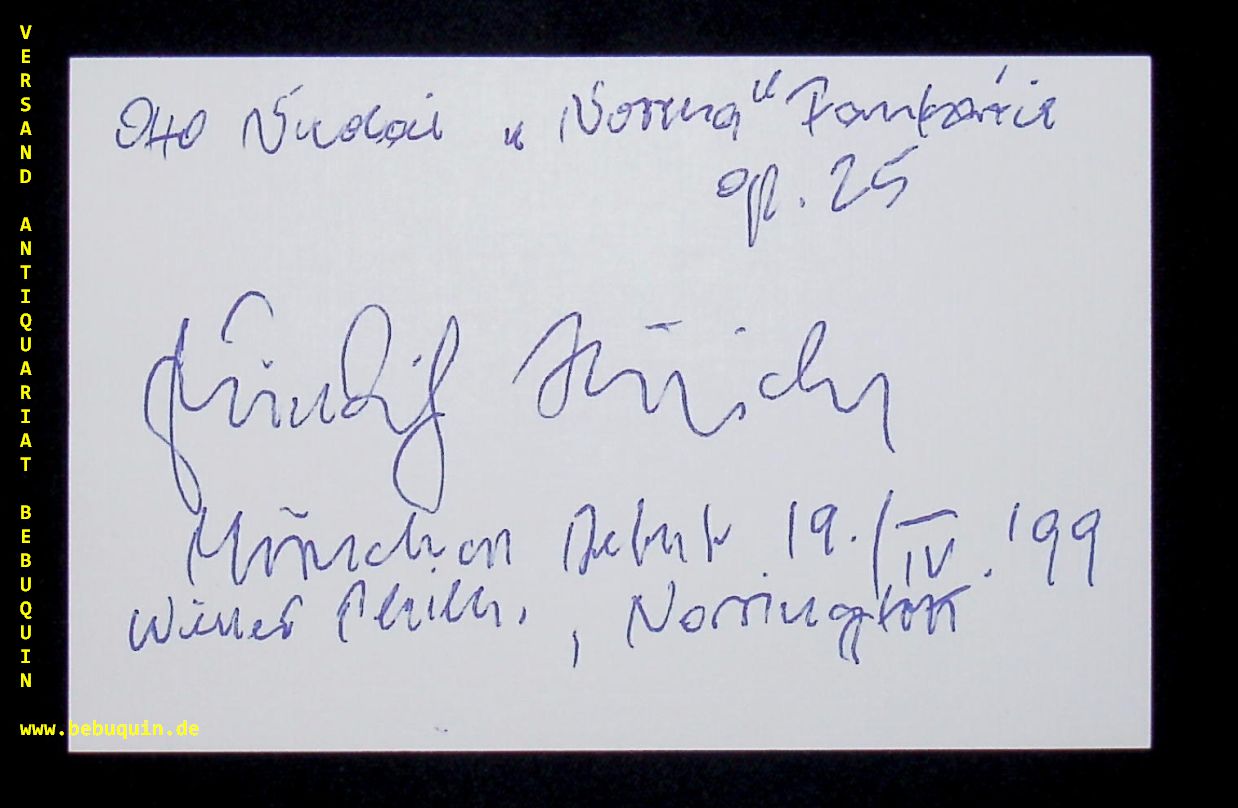 VERSAND ANTIQUARIAT BEBUQUIN
Otto Nicolai „Norma“ Fantasie
op. 25
München Debut 19./IV. '99
Wiener Philh., Norrington
www.bebuquin.de